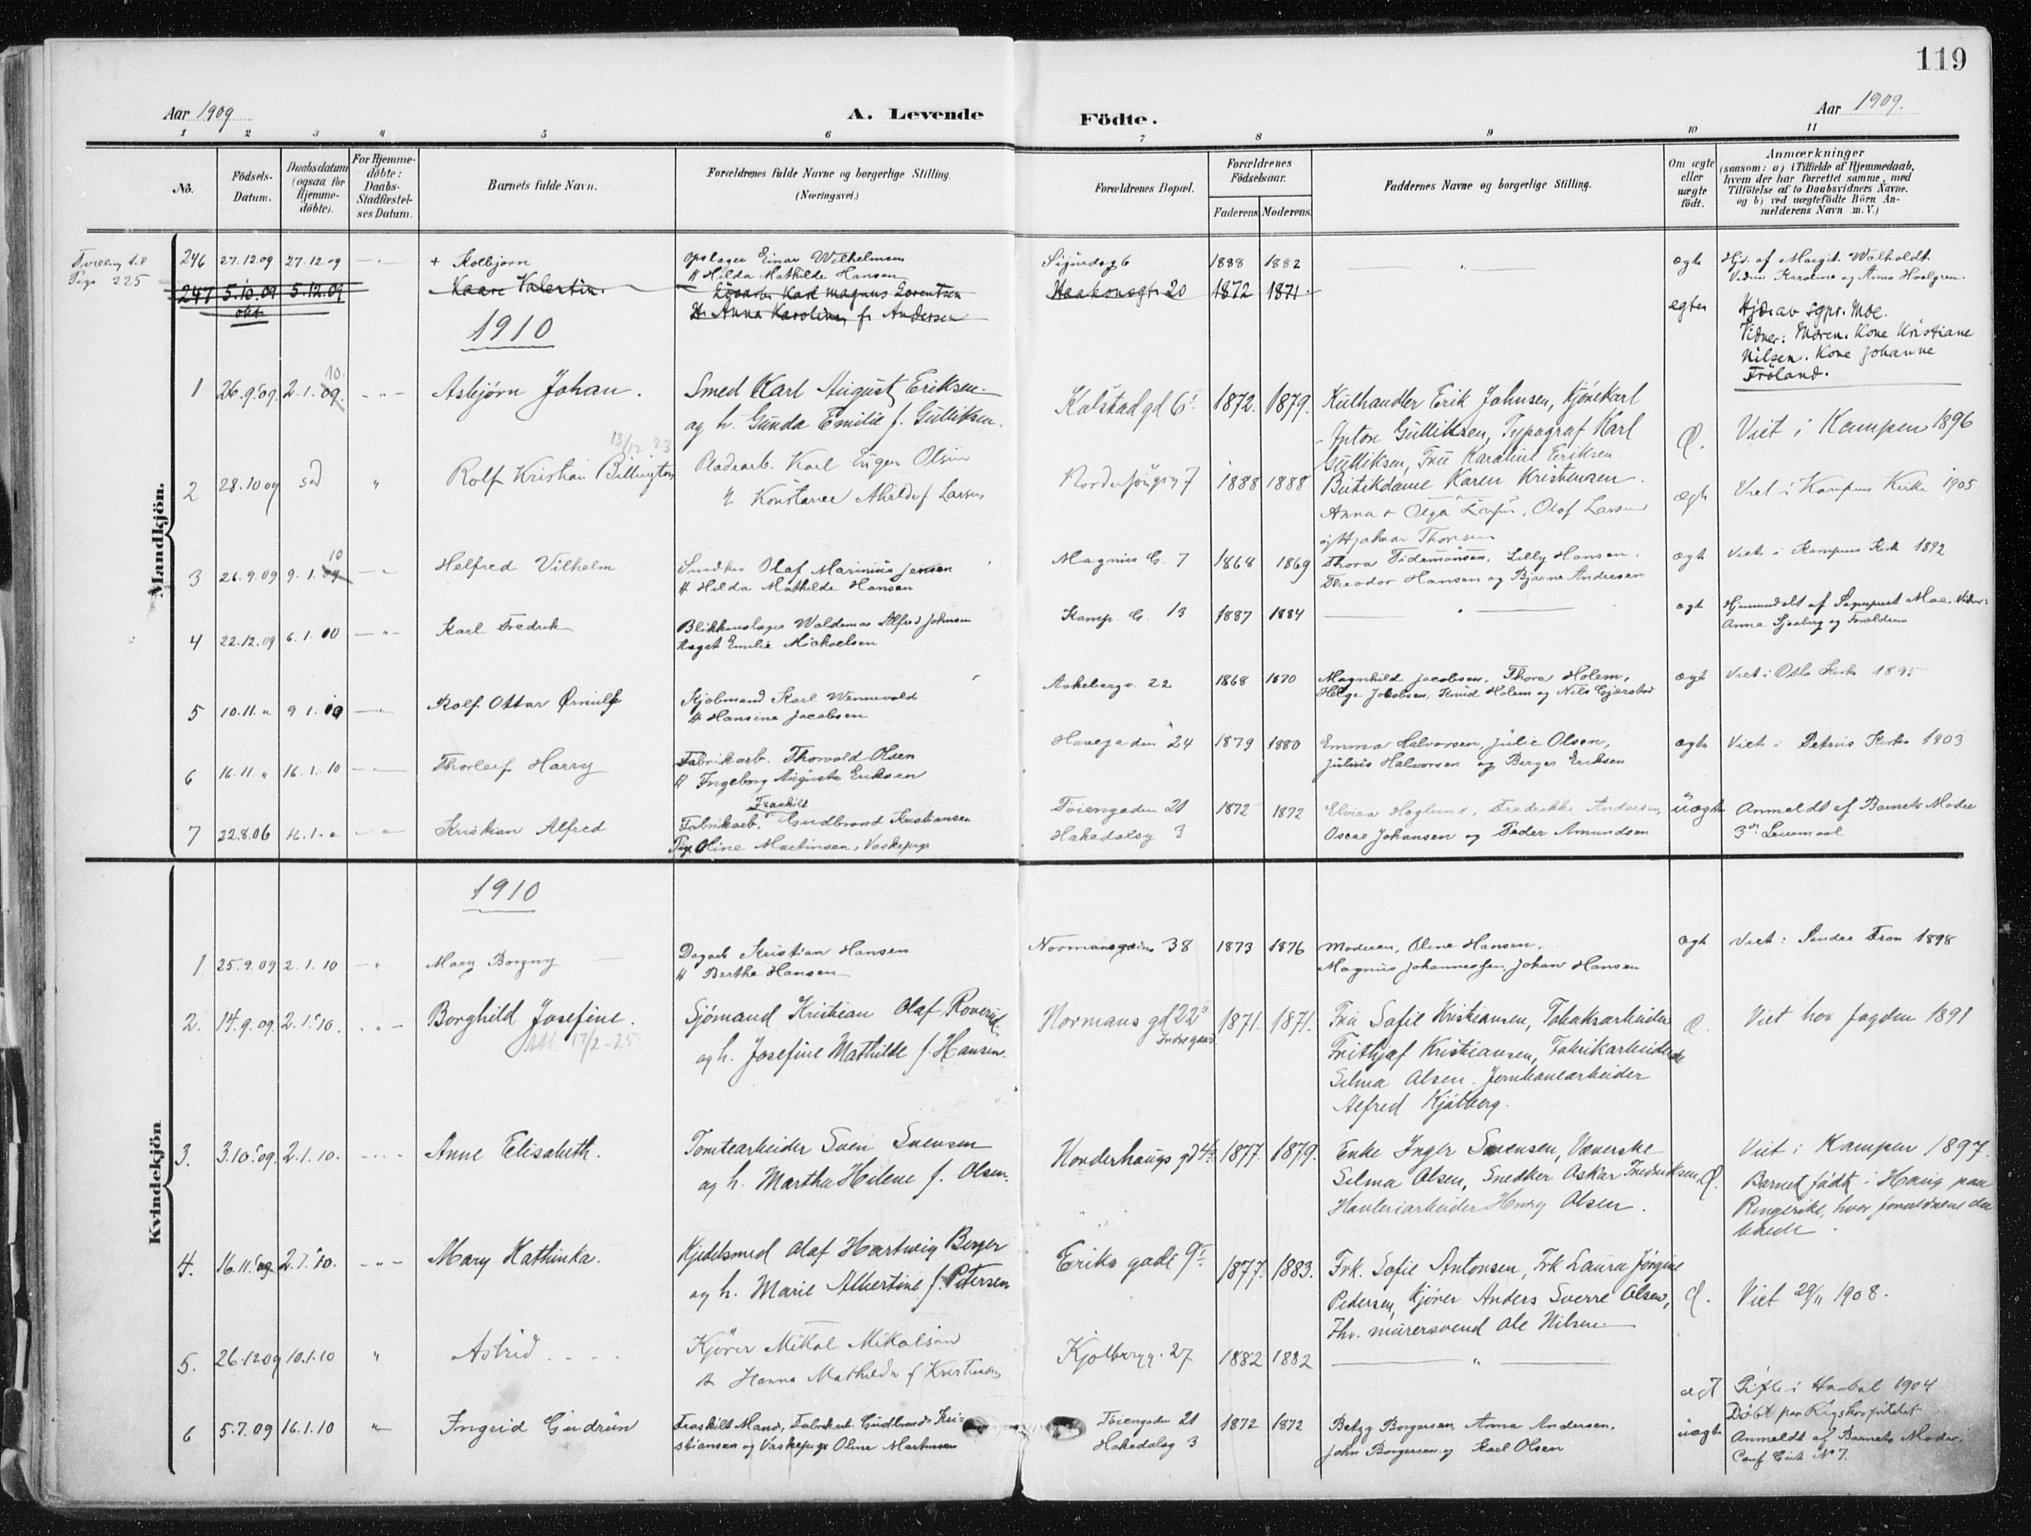 119
Aar 1909
A. Levende
Födte.
Aar 1909.
1 2 3 4 5 6 7 8 9 10 11
No.
Födsels-Datum.
Daabsdatum (ogsaa for Hjemme-döbte).
For Hjemme-döbte: Daabs-Stadfæstel-ses Datum.
Barnets fulde Navn.
Forældrenes fulde Navne og borgerlige Stilling. (Næringsvei.)
Forældrenes Bopæl.
Forældrenes Födselsaar.
Faderens Moderens
Faddernes Navne og borgerlige Stilling.
Om ægte eller uægte födt.
Anmærkninger
(saasom: a) i Tilfælde af Hjemmedaab,
hvem der har forrettet samme, med
Tilföielse af to Daabsvidners Navne.
og b) ved uægtefödte Börn An-
melderens Navn m. V.)
Mandkjön.
Tvilling til
Pige 225
246 27.12.09 27.12.09 + Kolbjørn
Einar Wilhelmsen
Hilda Mathilde Hansen
Sigurdsg 6 1888 1882 ægte
Hjd. af Margit Walholdt
247 5.10.09 5.12.09 Kaare Valentin.
Karl Magnus Lorentsen
H. Anna Karoline f. Andersen
Haakonsgt. 20 1872 1871 egte
Hjd. av sgpr. Moe.
Vidner: Moren. Kone Kristiane
Nilsen. Kone Johanne
Fröland.
1910
1 26.9.09 2.1.09. 10. Asbjørn Johan.
Smed Karl August Eriksen
og h. Gunda Emilie f. Gulliksen.
Kalstadgd 6 1872. 1879.
Kulhandler Erik Johnsen, Kjørekarl
Anton Gulliksen, Typograf Karl
Gulliksen, Frue Karoline Eriksen
Viet i Kampen 1896
2 28.10.09 Rolf Kristian Billington 13/12 23
Karl Eugen Olsen
Konstance f Larsen
7 1888 1888
Butikdame Karen Kristensen.
Anna + Olga Olaf Larsen
og Hjalmar Thoresen
ægt Viet i Kampens Kirke 1905
3 26.9.09 9.1.09 10 Helfred Vilhelm
Olaf Marinius Jensen
H Hilda Mathilde Hansen
Magnus G. 7 1868 1869
Thora Tidemansen. Lilly Hansen.
Theodor Hansen og Bjarne Andresen
ægt Viet i Kampens Kirk 1892
4 22.12.09 6.1.10 Karl Fredrik
Blikkenslager Waldemar Alfred Johnsen
Aagot Emilie Michaelsen
Kamp. G. 13 1887 1884 ægt
Hjemmedøbt af Sogneprest Moe. Vidner:
Anna Sjøberg og Forældrene
5 10.11. " 9.1.10 Rolf Ottar Ørnulf
Kjøbmand Karl Wennevold
H Hansine Jacobsen
Aakebergv. 22 1868 1870
Magnhild Jacobsen. Thora Holem,
Helge Jacobsen, Knud Holem og Nils Gjerstad
ægt Viet i Oslo Kirk 1895
6 16.11. " 16.1.10 Thorleif Harry
Fabrikarb. Thorvald Olsen
H Ingeborg Augusta Eriksen
Havegaden 24 1879 1880
Emma Halvorsen, Julie Olsen,
Julius Halvorsen og Berger Eriksen
ægte Viet i Petrus Kirke 1903
7 22.8.06 16.1. " Kristian Alfred
Fraskilt
Fabrikarb. Gudbrand Kristiansen
Pige Oline Martinsen, Vaskepige
Tøiengaden 21 1872 1872
Hakedalsg 3
Elvira Høglund, Fredrikke Andersen,
Oscar Johansen og Peder Amundsen
uægte Anmeldt af Barnets Moder
3die Leiermaal
Kvindekjön
1910
1 25.9.09 2.1.10 Mary Borgny
Dagarb Kristian Hansen
H Berthe Hansen
Normansgaden 38 1873 1876
Moderen, Oline Hansen,
Magnus Johannessen, Johan Hansen
ægt Viet i Søndre Fron 1898
2. 14.9.09. 2.1.10. Borghild Josefine.
17/2-25
Sjømand Kristian Olaf Roverud
og h. Josefine Mathilde f. Hansen.
Normans gd 22 1871. 1871.
Indregaard
Fru Sofie Kristiansen, Tobaksarbeider
Frithjof Kristiansen, Fabrikarbeiderske
Selma Olsen. Jernbanearbeider
Alfred Kjølberg.
Viet hos Fogden 1891
3. 3.10.09. 2.1.10. Anne Elisabeth.
Tomtearbeider Sven Svensen
og h. Martha Helene f. Olsen.
Nonderhaugs gd 4 1877. 1879.
Enke Inger Svensen, Væverske
Selma Olsen, Snedker Oskar Fredriksen,
Henry Olsen.
Viet i Kampen 1897.
Barnet født i Haug paa
Ringerike, hvor forældrene da
boede.
4. 16.11.09. 2.1.10. Mary Kathinka.
Kjedelsmed Olaf Hartwig Berger
og h. Marie Albertine f. Petersen
Eriks gade 9 1877. 1883.
Frk. Sofie Antonsen, Frk Laura Jørgine
Pedersen, Kjører Anders Sverre Olsen,
Fhv. murersvend Ole Nilsen
Viet 29/11 1908.
5. 26.12.09 10.1.10 Astrid
Kjører Mikal Mikalsen
H Hanna Mathilde f Kristiansen
Kjølbergg. 27 1882 1882
ægt 1904
6 5.7.09 16.1.10 Ingrid Gudrun
Fraskilt Mand, Fabrikarb Gudbrand Kri-
stiansen og Vaskepige Oline Martinsen
Tøiengaden 21 1872 1872
Hakedalsg 3
Betzy Borgersen, Anna Andersen,
John Borgersen og Karl Olsen
uægte Døbt paa Rigshospitalet
Anmeldt af Barnets Moder.
Conf No 7.